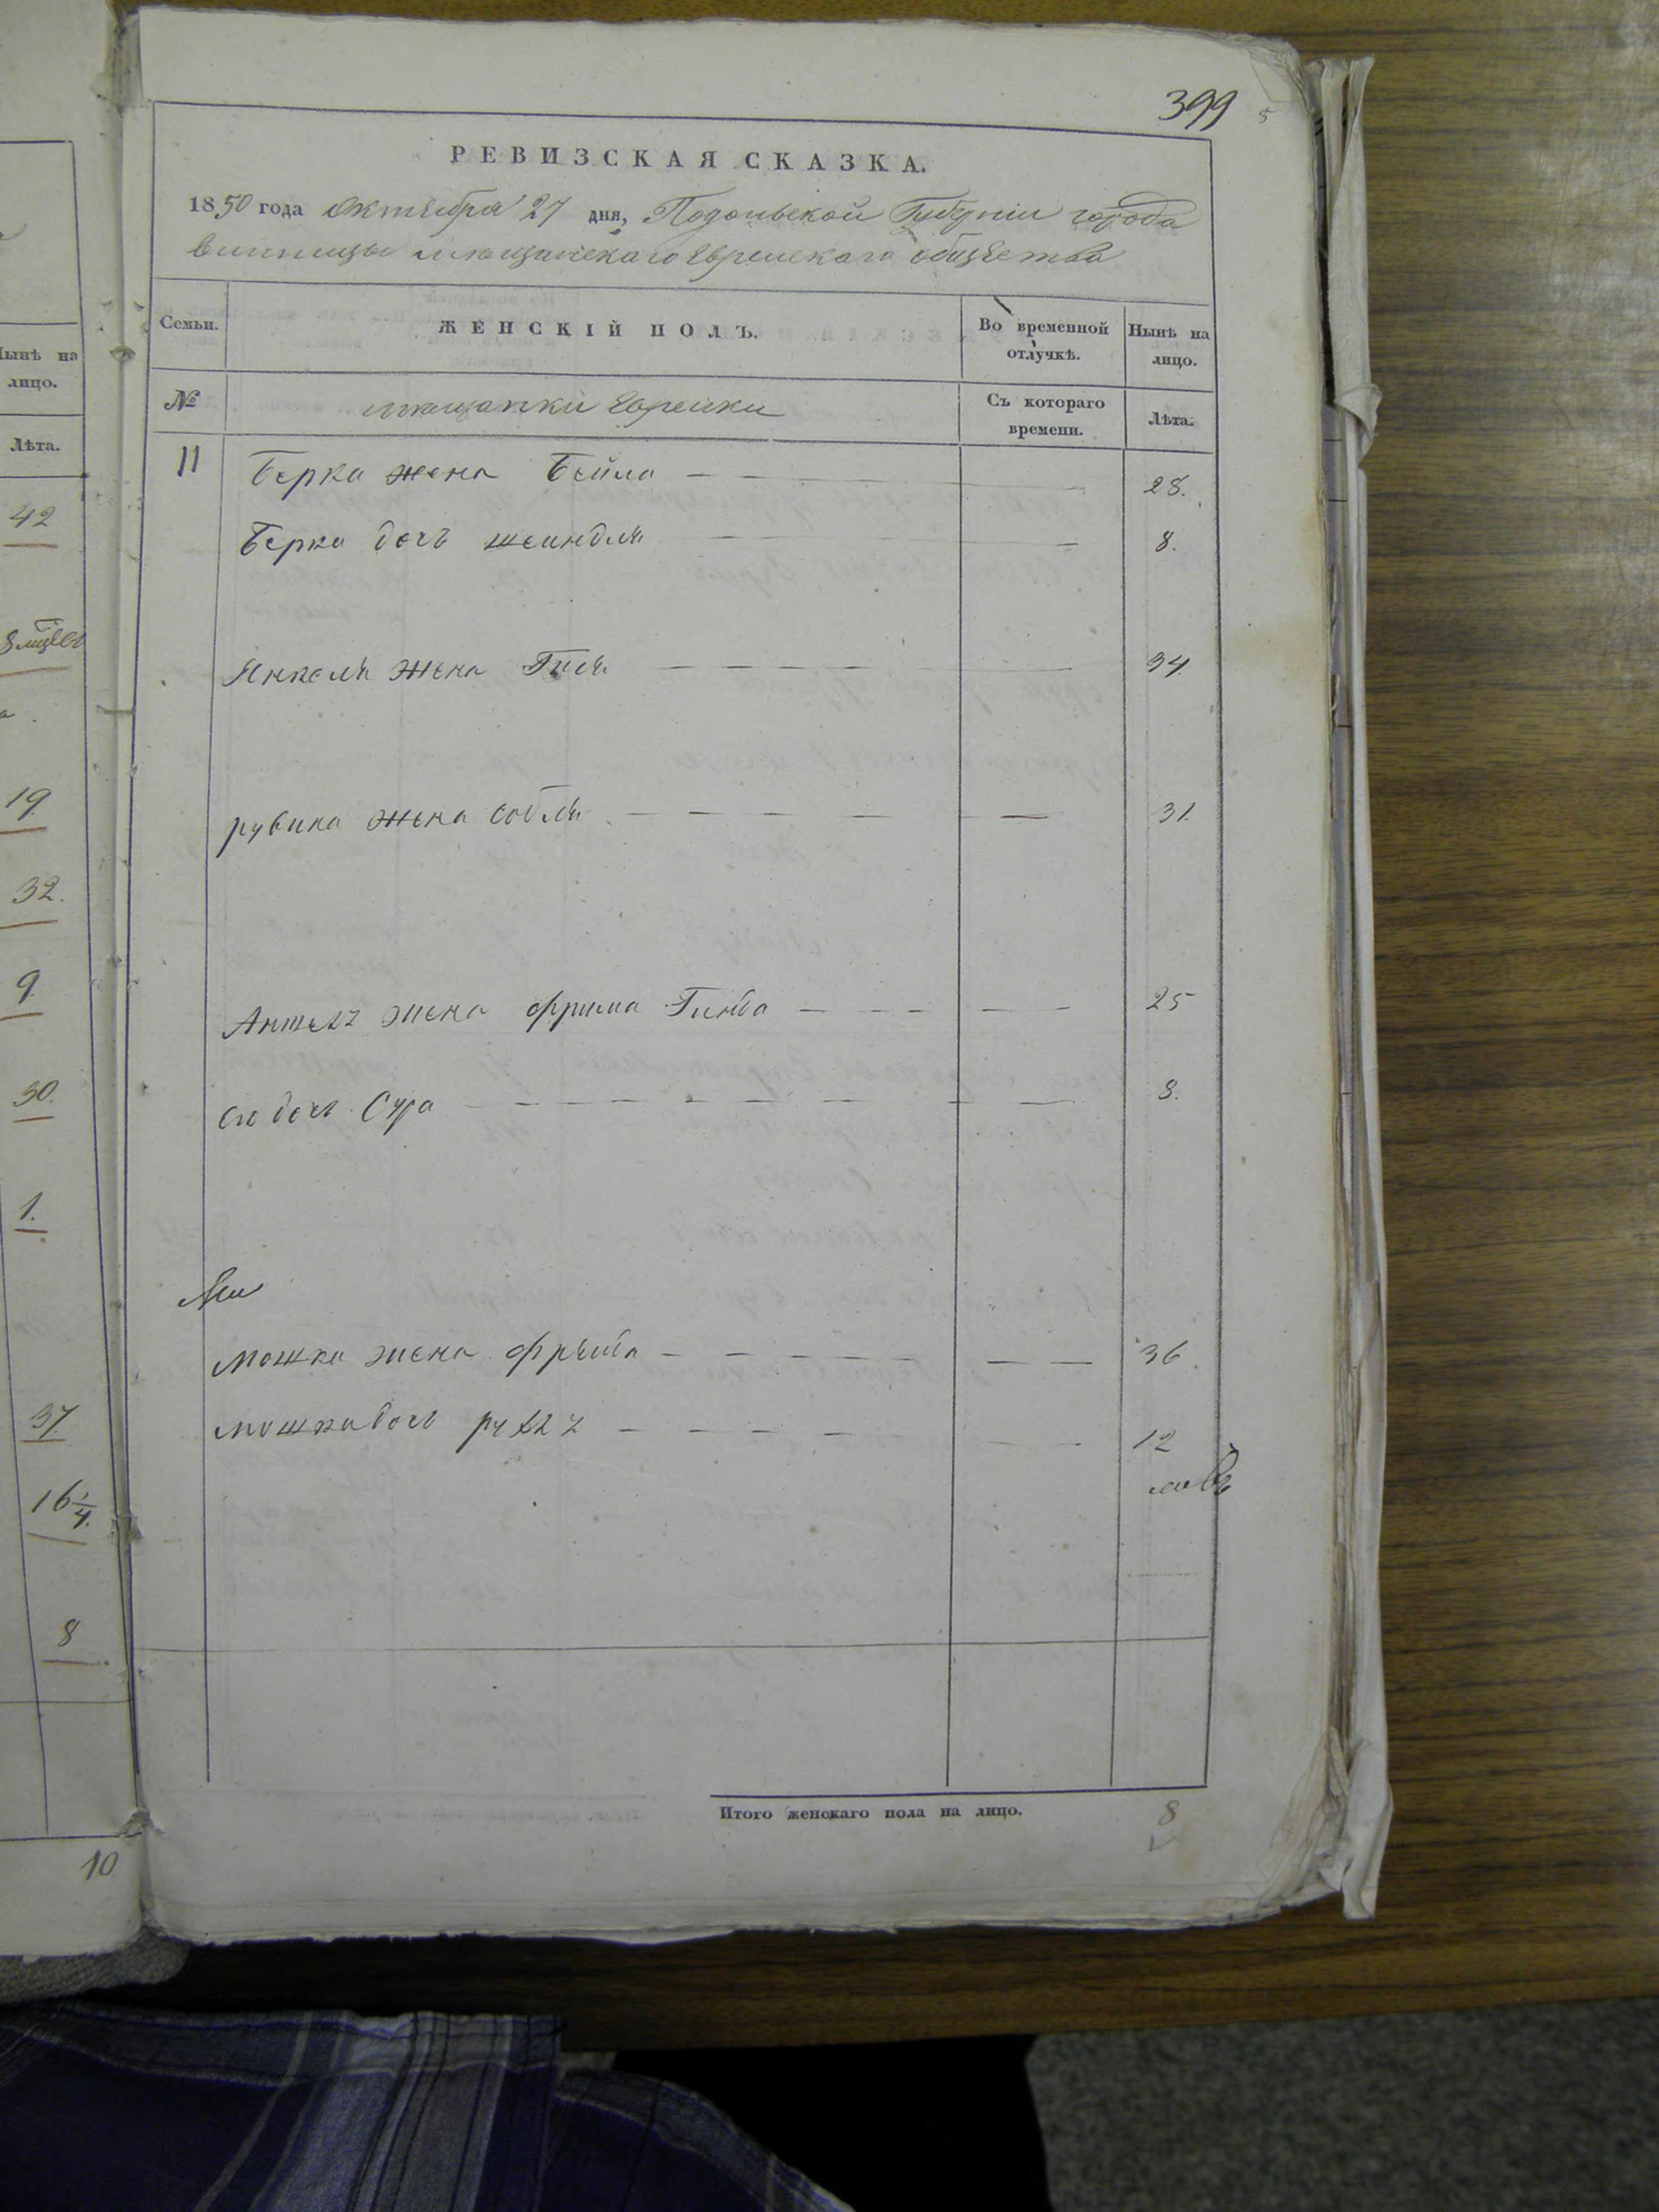 399
РЕВИЗСКАЯ СКАЗКА.
1850 года Октября 27 дня, Подольской Губерніи города
винницы мещанскаго Еврейскаго общества
Семьи.
ЖЕНСКІЙ ПОЛЪ.
Во временной отлучкѣ.
Нынѣ на лицо.
№
мещанки Еврейки
Съ котораго времени.
Лѣта.
11 Берка жена Бейла 28.
Берка дочь шейндля 8.
Янкеля жена Гися 34.
рувина жена собля 31.
жена фрима Гинда 25
его дочь Сура 8.
Мошка жена фрейда 36.
мошка дочь рухля 12
Итого женскаго пола на лицо. 8
Нынѣ на
лицо.
Лѣта.
42
19.
32.
9.
30.
1.
37.
16 1/4.
8
10